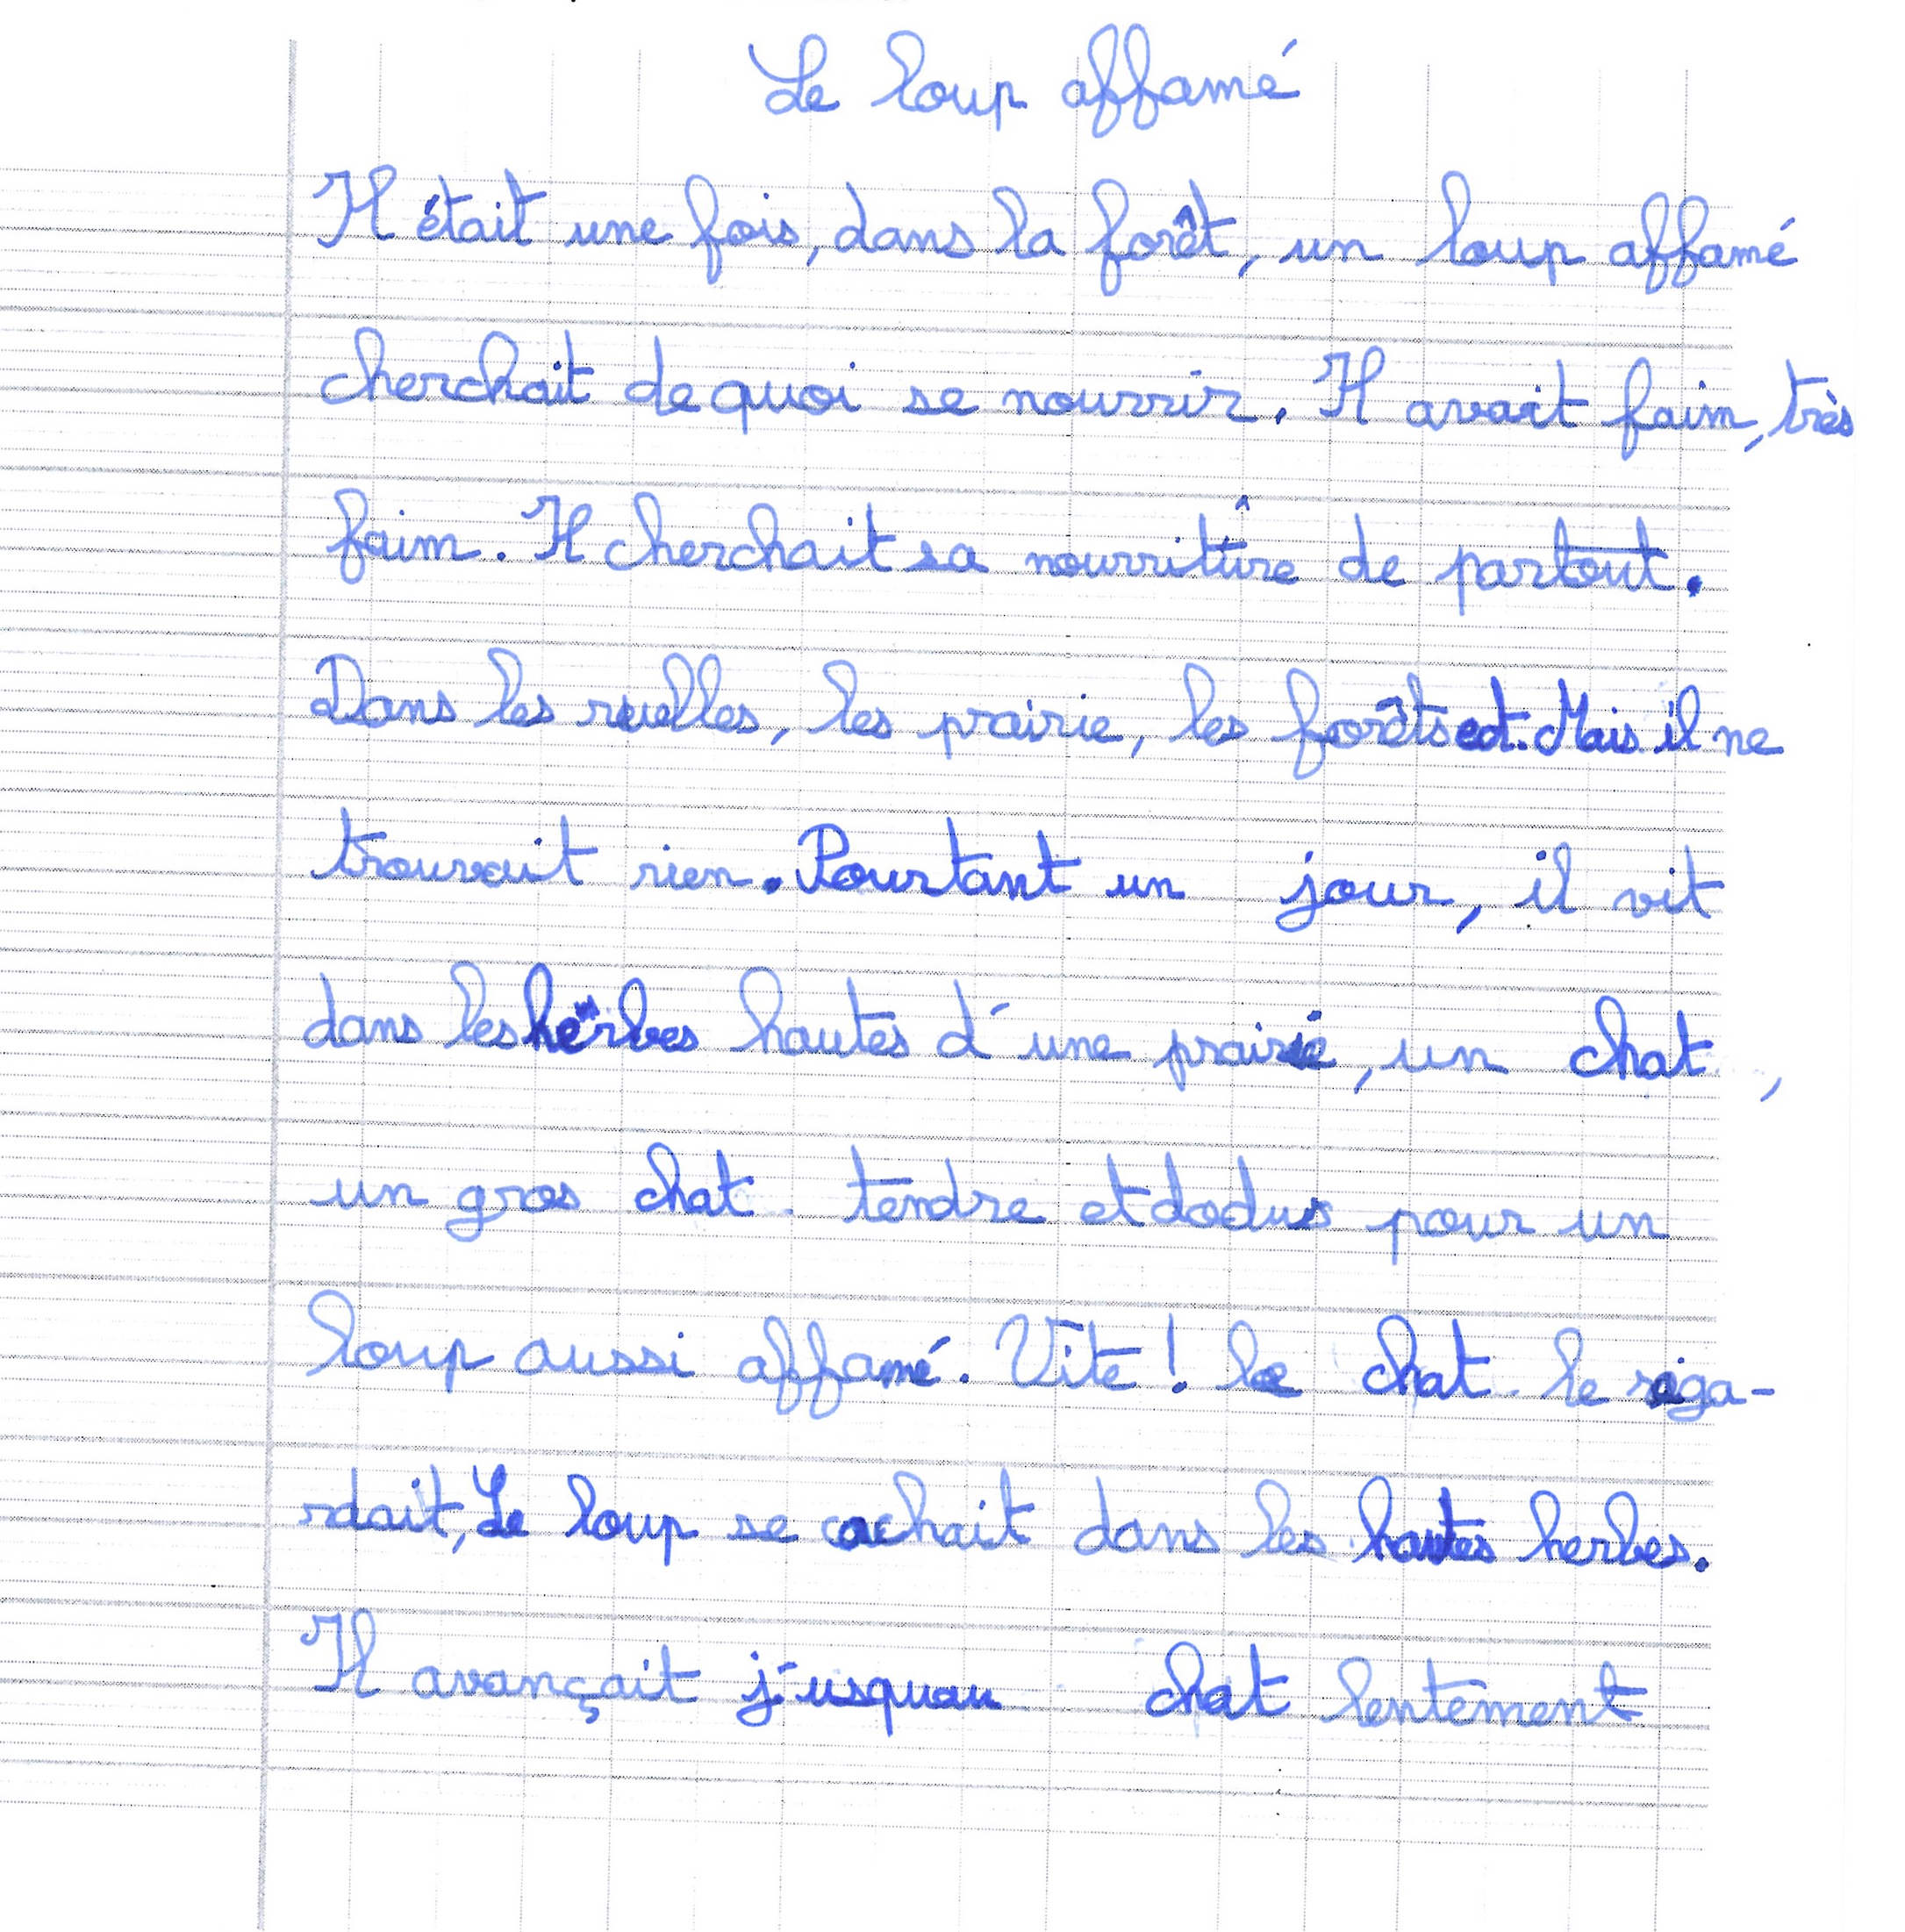 Le loup affamé
Il était une fois, dans la forêt, un loup affamé
cherchait de quoi se nourrir. Il avait faim, très
faim. Il cherchait sa nourritûre de partout.
Dans les ruelles, les prairie, les forêts ect. Mais il ne
trouvait rien. Pourtant un jour, il vit
dans les herbes hautes d'une prairie, un chat,
un gros chat tendre et dodus pour un
loup aussi affamé. Vite ! le chat le rega-
rdait, Le loup se cachait dans les hautes herbes.
Il avançait j'usquau chat lentement